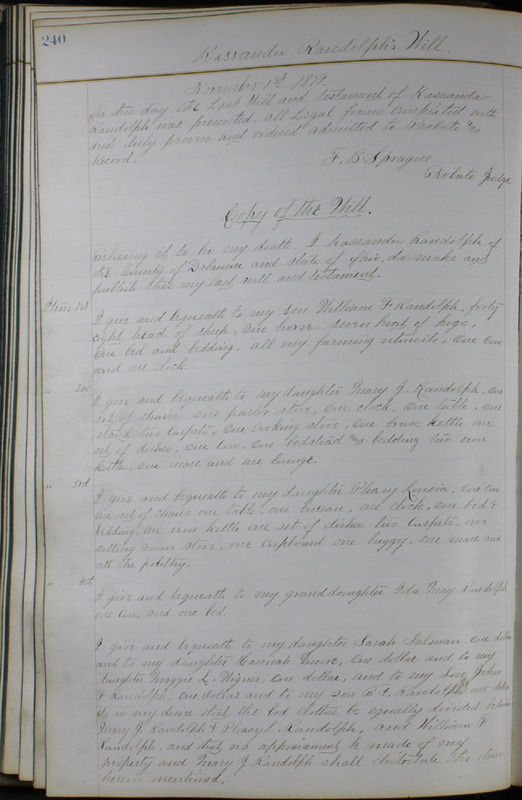 240
Kassandra Randolph's Will.
November 1st 187
In this day the Last Will and testament of Kassandra
Randolph was presented, all Legal forms complied with
and duly proven and ordered admitted to Probate &
Record.
F. B. Sprague
Probate Judge
Copy of the Will.
Believing it to be my death. I Kassandra Randolph of
the County of Delaware and State of Ohio, do make and
publish this my last will and testament.
Item 1st
I give and bequeath to my son William F. Randolph, forty
eight head of sheep, one horse. seven head of hogs,
one bed and bedding, all my farming utensils, one cow
and one clock.
" 2nd
I give and bequeath to my daughter Mary J. Randolph, one
set of chairs one parlor stove, one clock, one table, one
stand two carpets, one cooking stove, one brass kettle one
set of dishes, one cow, one bedstead & bedding two iron
kettles, one mare and one lounge.
" 3rd
I give and bequeath to my daughter one cow
one set of chairs one table, one bureau, one clock, one bed &
bedding, one iron kettle one set of dishes two carpets, one
setting room stove, one cupboard one buggy, one mare and
all the poultry.
" 4th
I give and bequeath to my granddaughter Ida Mary Randolph
one cow, and one bed.
I give and bequeath to my daughter Sarah one dollar
and to my daughter Hannah one dollar and to my
daughter Maggie L. one dollar, and to my son John
F Randolph, one dollar and to my son B. F. Randolph one dollar
it is my desire that the bed clothes be equally divided between
Mary J. Randolph & Randolph, and William F
Randolph, and that no appraisement be made of my
property and Mary J Randolph shall distribute the items
herein mentioned.